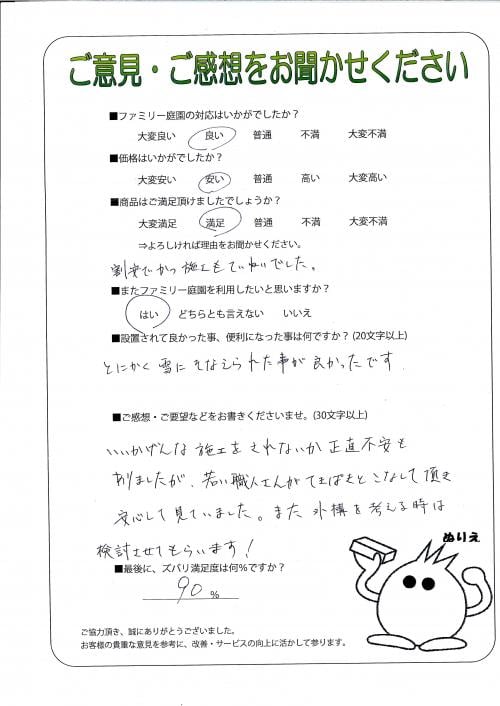 ご意見・ご感想をお聞かせください
■ファミリー庭園の対応はいかがでしたか？
大変良い 良い 普通 不満 大変不満
■価格はいかがでしたか？
大変安い 安い 普通 高い 大変高い
■商品はご満足頂けましたでしょうか？
大変満足 満足 普通 不満 大変不満
⇒よろしければ理由をお聞かせください。
割安でかつ施工もていねいでした。
■またファミリー庭園を利用したいと思いますか？
はい どちらとも言えない いいえ
■設置されて良かった事、便利になった事は何ですか？(20文字以上)
とにかく雪にそなえられた事が良かったです
■ご感想・ご要望などをお書きくださいませ。(30文字以上)
いいかげんな施工をされないか正直不安も
ありましたが、若い職人さんがてきぱきとこなして頂き
安心して見ていました。また外構を考える時は
検討させてもらいます！
ぬりえ
■最後に、ズバリ満足度は何％ですか？
90 %
ご協力頂き、誠にありがとうございました。
お客様の貴重な意見を参考に、改善・サービスの向上に活かして参ります。